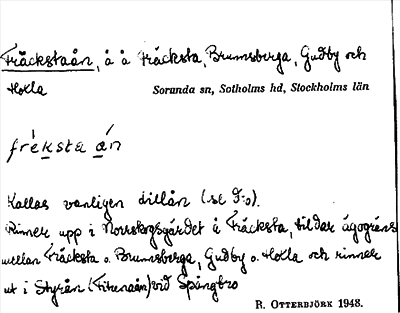 Fräckstaån, å å Fräcksta, Brunnsberga, Gudby och
Hoxla Sorunda sn, Sotholms hd, Stockholms län
fréksta án
Kallas vanligen dillån (se D:o).
Rinner upp i Norrskogsgärdet å Fräcksta, bildar ägogräns
mellan Fräcksta o. Brunnsberga, Gudby o. Hoxla och rinner
ut i Styrån (Fitunaån) vid Spångbro
R. OTTERBJÖRK 1948.